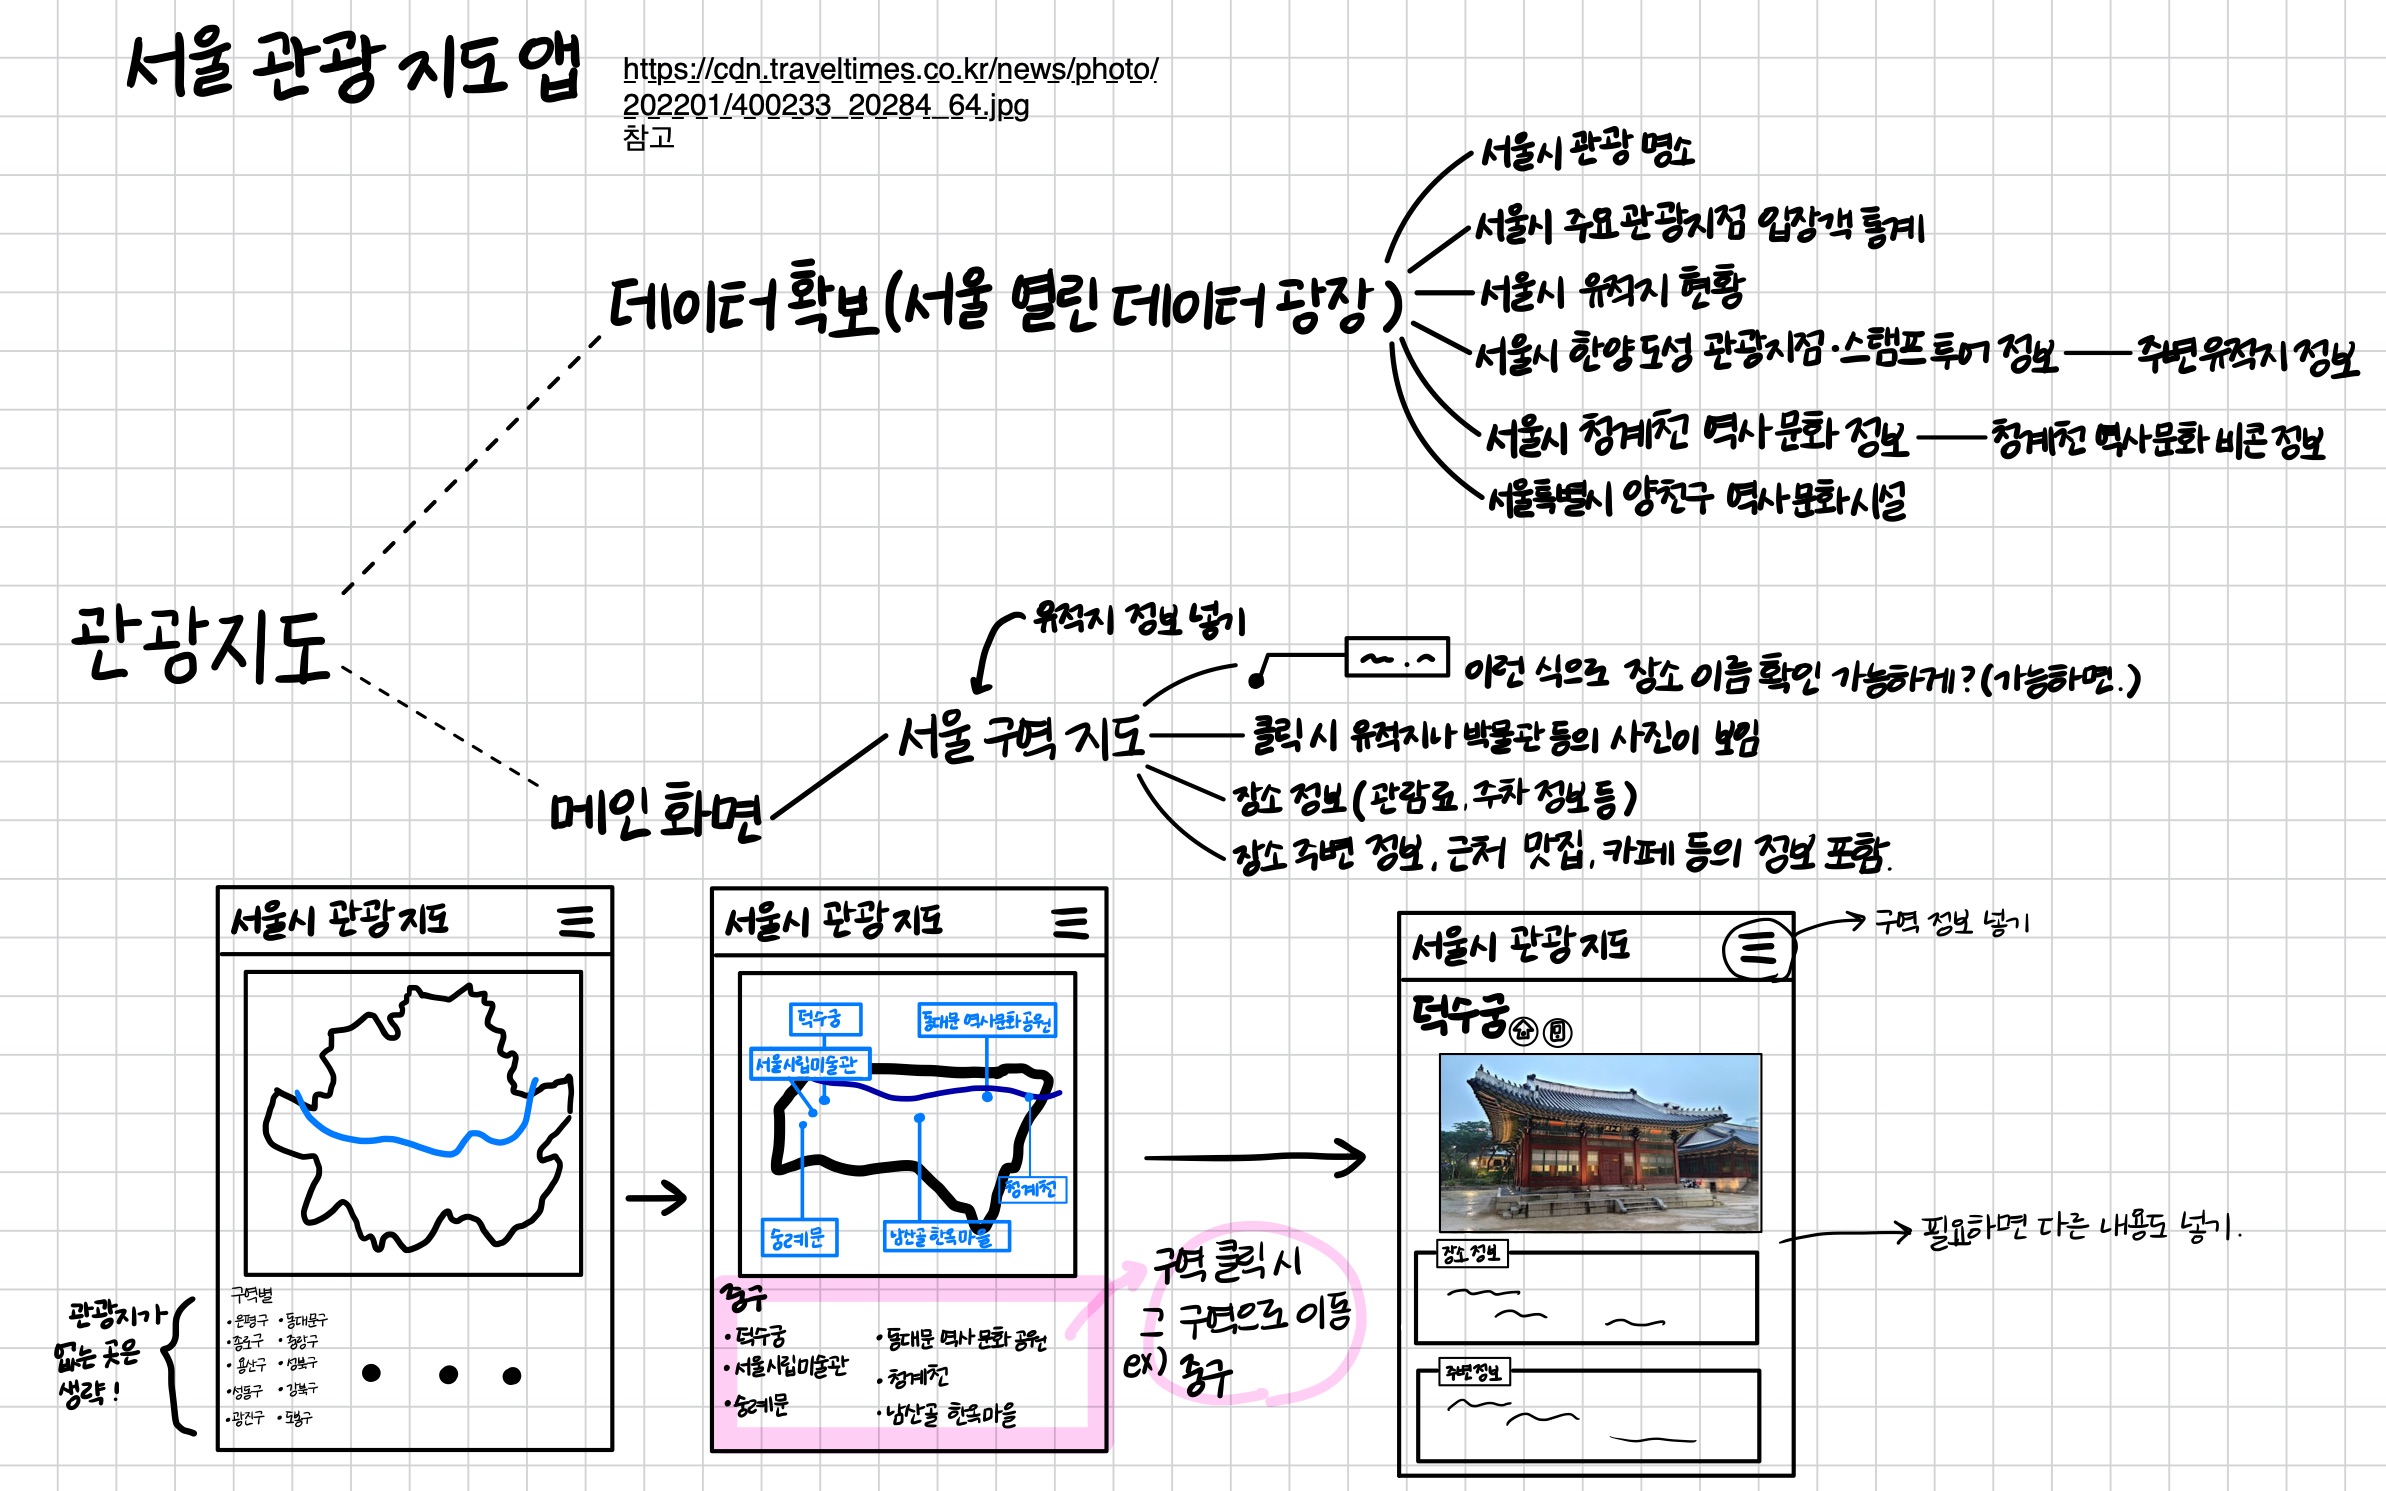 서울 관광 지도 앱
https://cdn.traveltimes.co.kr/news/photo/
202201/400233_20284_64.jpg
참고
서울시 관광 명소
서울시 주요관광지점 입장객 통계
데이터 확보(서울 열린 데이터 광장)
서울시 유적지 현황
서울시 한양도성 관광지점·스탬프 투어 정보
주변 유적지 정보
서울시 청계천 역사 문화 정보
청계천 역사 문화 비콘 정보
서울특별시 양천구 역사 문화시설
관광지도
유적지 정보 넣기
이런 식으로 장소 이름 확인 가능하게?(가능하면.)
서울 구역 지도
클릭 시 유적지나 박물관 등의 사진이 보임
메인 화면
장소 정보(관람료, 주차 정보 등)
장소 주변 정보, 근처 맛집, 카페 등의 정보 포함.
서울시 관광 지도
구역별
·은평구 ·동대문구
·종로구 ·중랑구
·용산구 ·성북구
·성동구 ·강북구
·광진구 ·도봉구
관광지가
없는 곳은
생략!
서울시 관광 지도
덕수궁
동대문 역사문화공원
서울시립미술관
청계천
숭례문
남산골 한옥마을
중구
·덕수궁
·서울시립미술관
·숭례문
·동대문 역사 문화 공원
·청계천
·남산골 한옥마을
구역 클릭 시
그 구역으로 이동
ex) 중구
서울시 관광 지도
구역 정보 넣기
덕수궁
필요하면 다른 내용도 넣기.
장소 정보
주변 정보